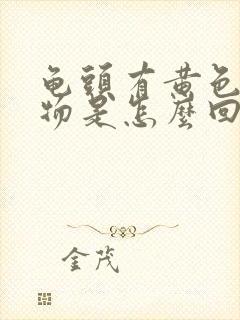 龟頭有黄色
物是怎麼回
金茂